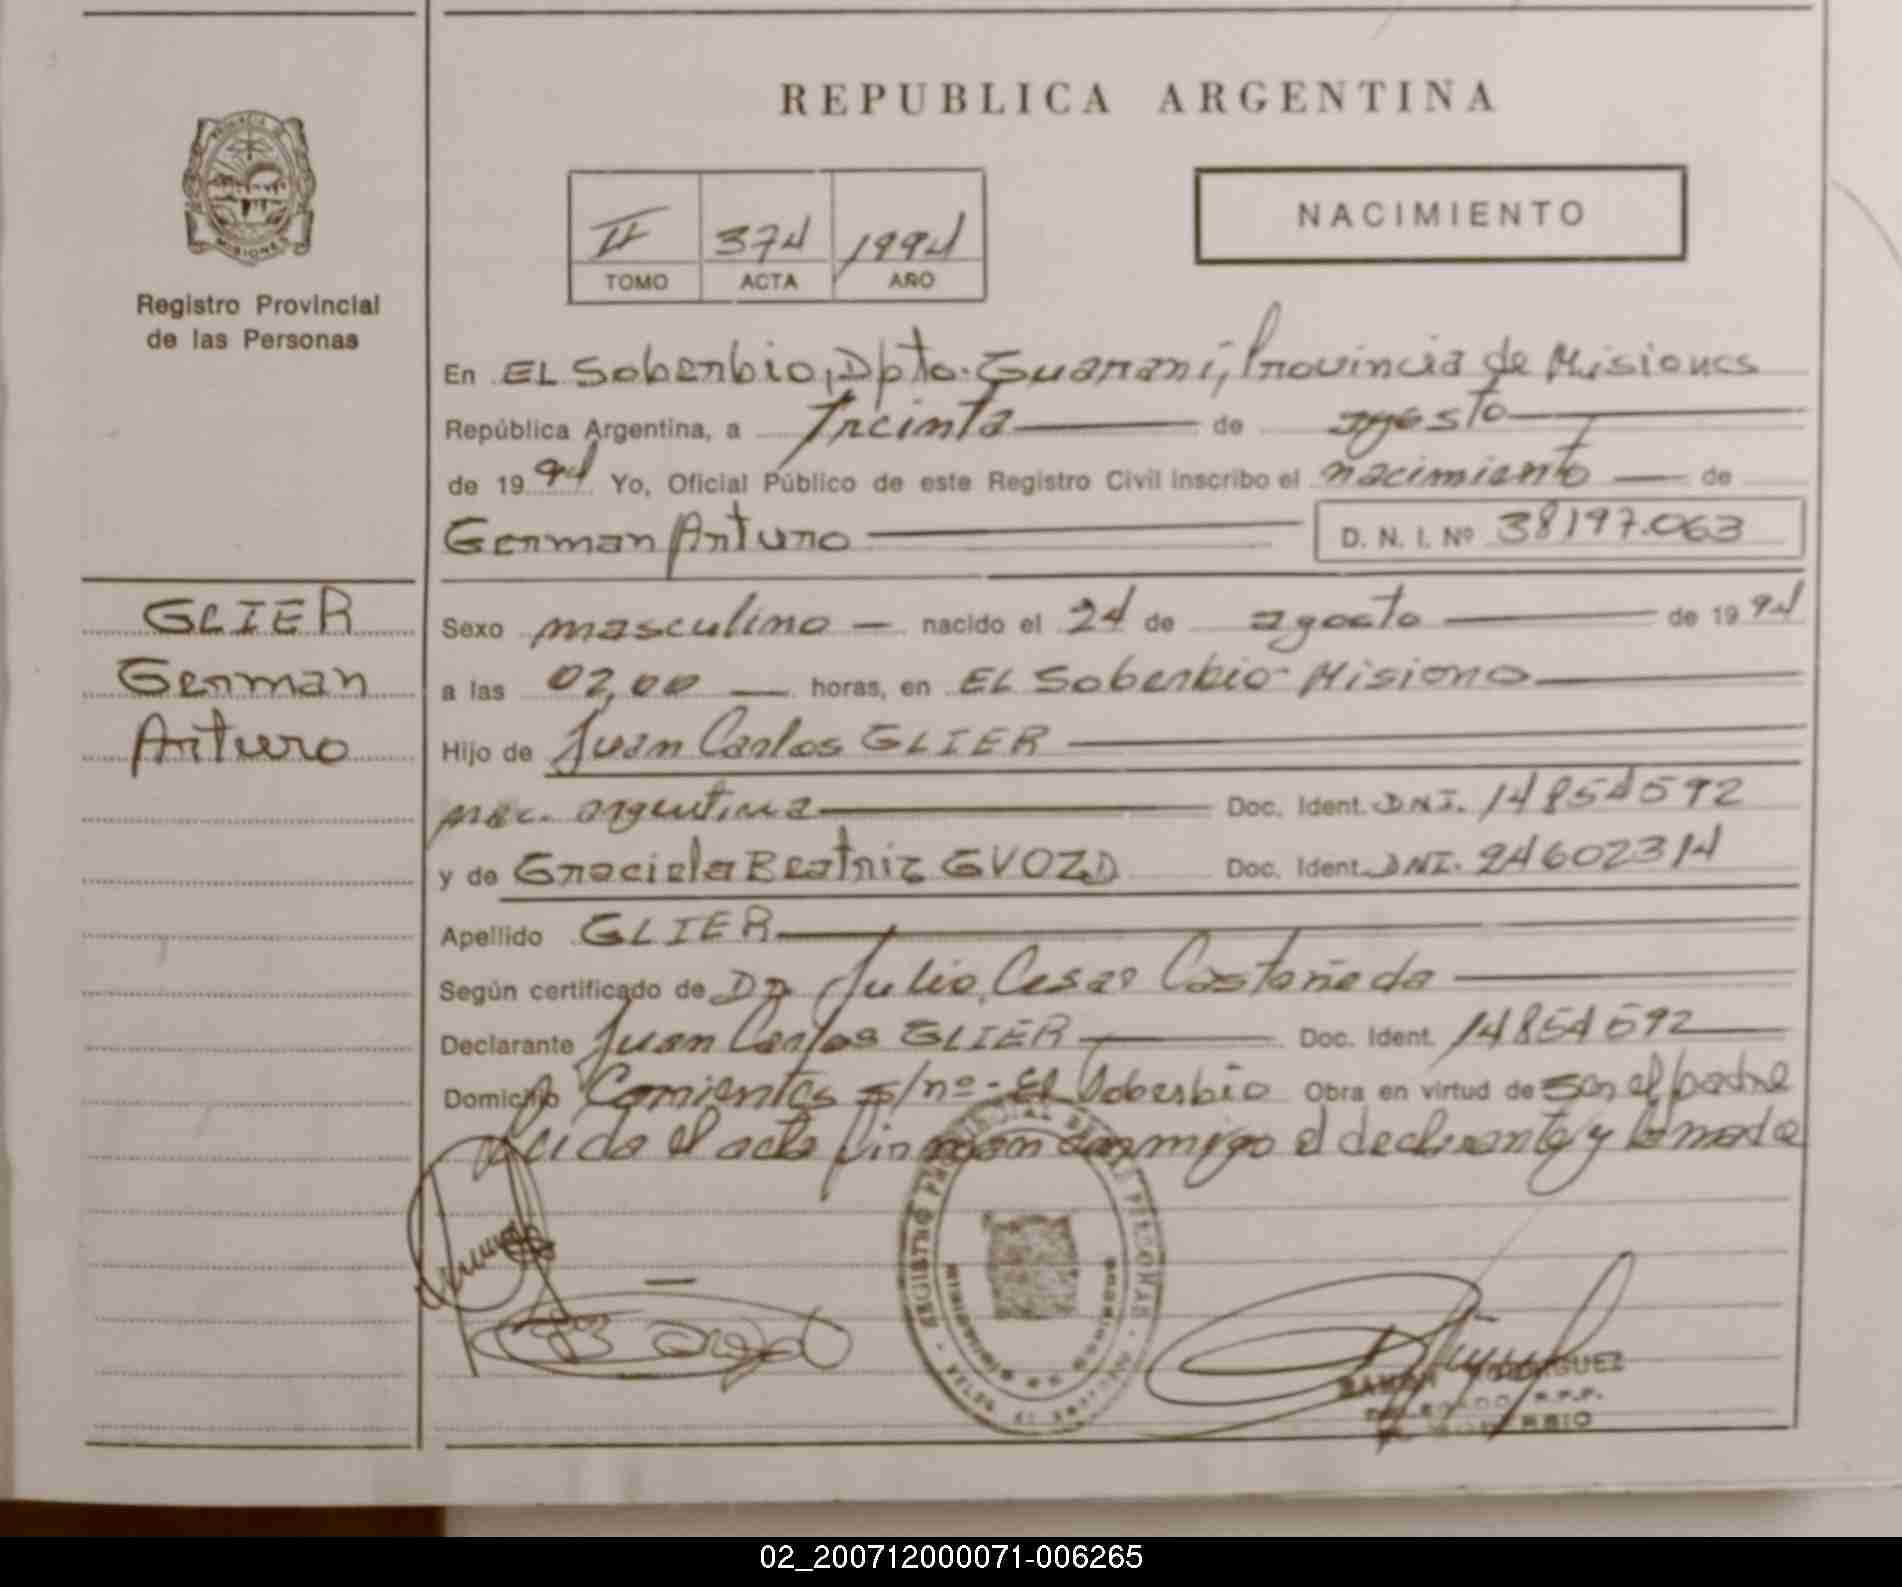 REPUBLICA ARGENTINA
PROVINCIA DE
MISIONES
Registro Provincial
de las Personas
II 374 1994
TOMO ACTA AÑO
NACIMIENTO
En EL Soberbio, Dpto. Guarani, Provincia de Misiones
República Argentina, a Treinta de agosto
de 1994 Yo, Oficial Público de este Registro Civil inscribo el nacimiento de
German Arturo D. N. I. Nº 38197.063
GLIER
German
Arturo
Sexo masculino nacido el 24 de agosto de 1994
a las 02,00 horas, en EL Soberbio- Misiones
Hijo de Juan Carlos GLIER
nac. argentina Doc. Ident. DNI. 14854592
y de Graciela Beatriz GVOZD Doc. Ident. DNI. 24602314
Apellido GLIER
Según certificado de Dr. Julio, Cesar Castañeda
Declarante Juan Carlos GLIER Doc. Ident. 14854592
Domicilio Corrientes s/nº - El Soberbio Obra en virtud de ser el padre
leida el acta firman conmigo el declarante y la madre
REGISTRO PROVINCIAL DE LAS PERSONAS
RAMON RODRIGUEZ
02_200712000071-006265